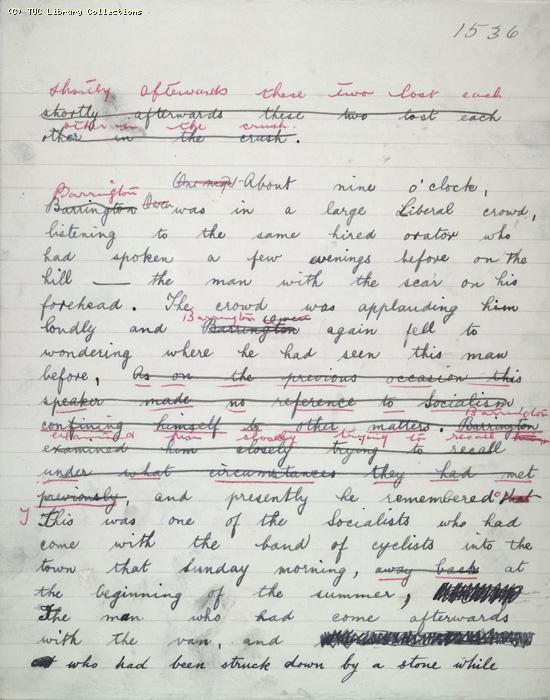 (C) TUC Library Collections
1536
shortly afterwards these two lost each
shortly afterwards these two lost each
other in the crush.
other in the crush.
One night About nine o'clock,
Barrington
Barrington Owen was in a large Liberal crowd,
listening to the same hired orator who
had spoken a few evenings before on the
hill — the man with the scar on his
forehead. The crowd was applauding him
Barrington Owen
loudly and Barrington again fell to
wondering where he had seen this man
before, As on the previous occasion this
speaker made no reference to Socialism
confining himself to other matters. Barrington
Barrington
examined him closely trying to recall
examined him closely trying to recall
under what circumstances they had met
previously, and presently he remembered that
This was one of the Socialists who had
come with the band of cyclists into the
town that Sunday morning, away back at
the beginning of the summer,
The man who had come afterwards
with the van, and
who had been struck down by a stone while